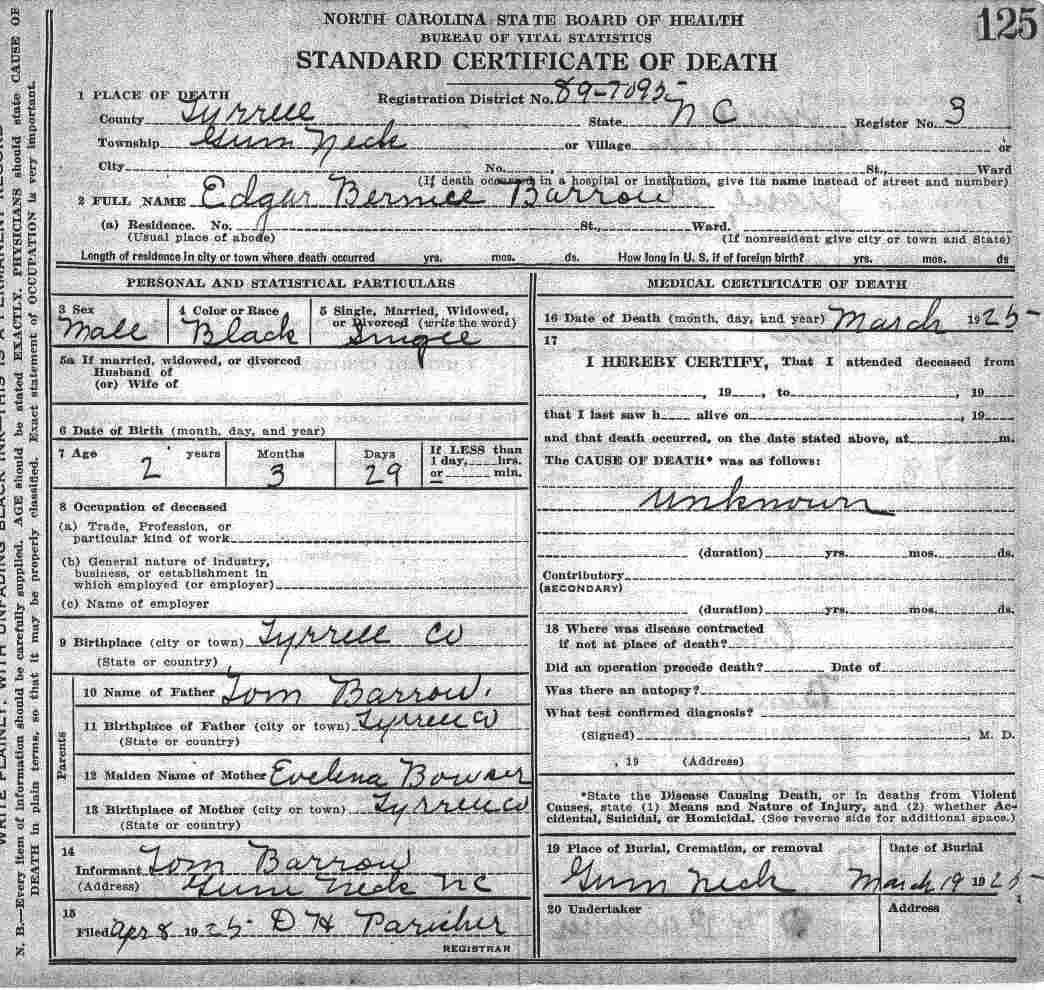 NORTH CAROLINA STATE BOARD OF HEALTH
125
BUREAU OF VITAL STATISTICS
STANDARD CERTIFICATE OF DEATH
1 PLACE OF DEATH
Registration District No. 89-7095
County Tyrrell State N C Register No. 3
Township Gum Neck or Village or
City No. , St., Ward
(If death occurred in a hospital or institution, give its name instead of street and number)
2 FULL NAME Edgar Bernice Barrow
(a) Residence. No. St., Ward.
(Usual place of abode) (If nonresident give city or town and State)
Length of residence in city or town where death occurred yrs. mos. ds. How long in U. S. if of foreign birth? yrs. mos. ds
PERSONAL AND STATISTICAL PARTICULARS
3 Sex 4 Color or Race 5 Single, Married, Widowed,
or Divorced (write the word)
Male Black Single
5a If married, widowed, or divorced
Husband of
(or) Wife of
6 Date of Birth (month, day, and year)
7 Age 2 years Months 3 Days 29 If LESS than
1 day, hrs.
or min.
8 Occupation of deceased
(a) Trade, Profession, or
particular kind of work
(b) General nature of industry,
business, or establishment in
which employed (or employer)
(c) Name of employer
9 Birthplace (city or town) Tyrrell Co
(State or country)
Parents
10 Name of Father Tom Barrow.
11 Birthplace of Father (city or town) Tyrrell Co
(State or country)
12 Maiden Name of Mother Evelina Bowser
13 Birthplace of Mother (city or town) Tyrrell Co
(State or country)
14
Informant Tom Barrow
(Address) Gum Neck NC
15
Filed Apr 8 1925 D H Paricher
REGISTRAR
MEDICAL CERTIFICATE OF DEATH
16 Date of Death (month, day, and year) March 1925
17
I HEREBY CERTIFY, That I attended deceased from
, 19 , to , 19
that I last saw h alive on , 19
and that death occurred, on the date stated above, at m.
The CAUSE OF DEATH* was as follows:
unknown
(duration) yrs. mos. ds.
Contributory
(SECONDARY)
(duration) yrs. mos. ds.
18 Where was disease contracted
if not at place of death?
Did an operation precede death? Date of
Was there an autopsy?
What test confirmed diagnosis?
(Signed) , M. D.
, 19 (Address)
*State the Disease Causing Death, or in deaths from Violent
Causes, state (1) Means and Nature of Injury, and (2) whether Ac-
cidental, Suicidal, or Homicidal. (See reverse side for additional space.)
19 Place of Burial, Cremation, or removal Date of Burial
Gum Neck March 19 1925
20 Undertaker Address
WRITE PLAINLY, WITH UNFADING BLACK INK—THIS IS A PERMANENT RECORD
N. B.—Every item of information should be carefully supplied. AGE should be stated EXACTLY. PHYSICIANS should state CAUSE OF
DEATH in plain terms, so that it may be properly classified. Exact statement of OCCUPATION is very important.